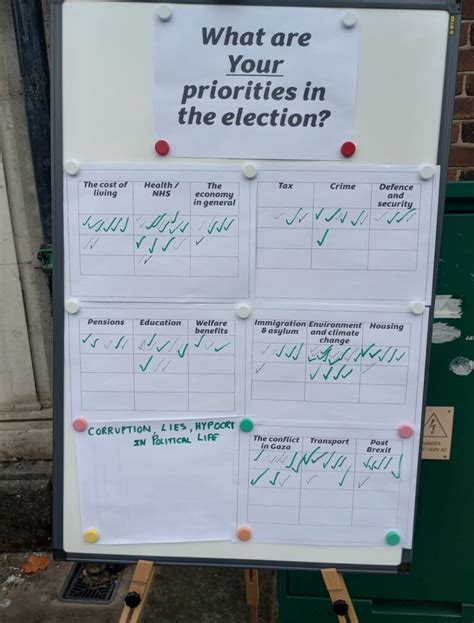 What are
Your
priorities in
the election?
The cost of
living
Health /
NHS
The
economy
in general
Tax
Crime
Defence
and
security
Pensions
Education
Welfare
benefits
Immigration
& asylum
Environment
and climate
change
Housing
CORRUPTION, LIES, HYPOCRI
IN POLITICAL LIFE
The conflict
in Gaza
Transport
Post
Brexit
DANGER